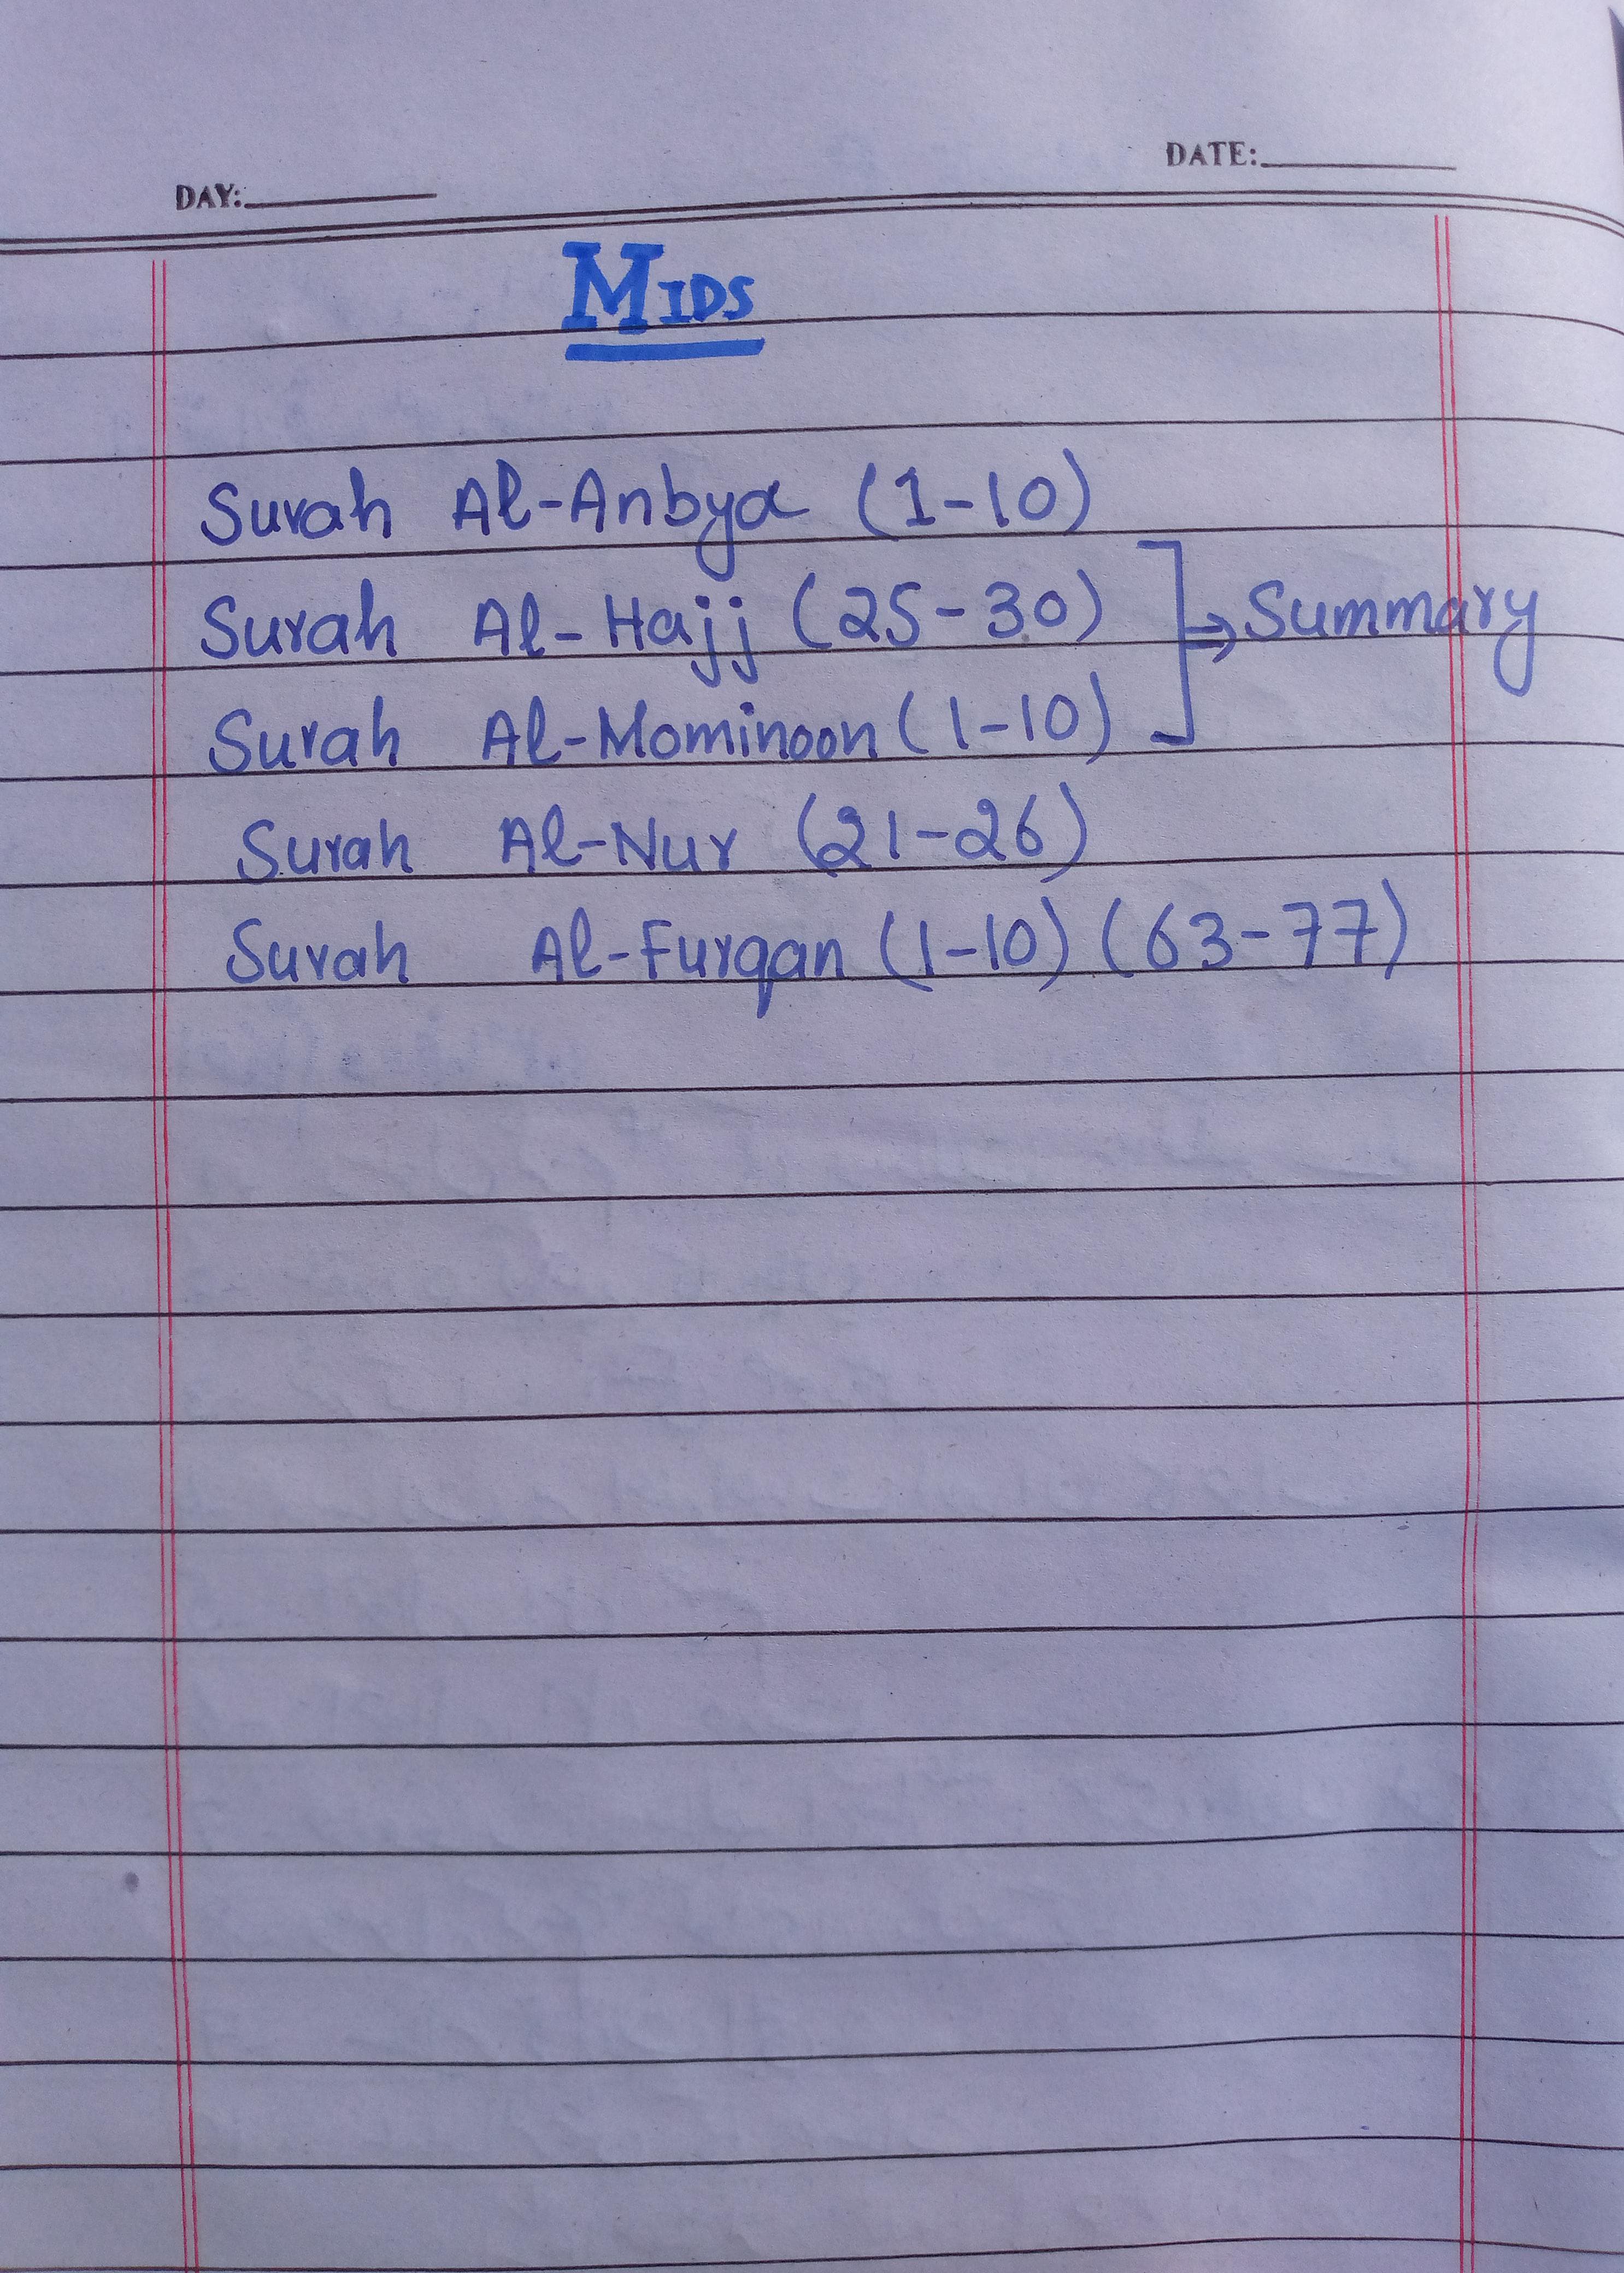 DATE:
DAY:
MIDS
Surah Al-Anbya (1-10)
Surah Al-Hajj (25-30)
⇒ Summary
Surah Al-Mominoon (1-10)
Surah Al-Nur (21-26)
Surah Al-Furqan (1-10) (63-77)